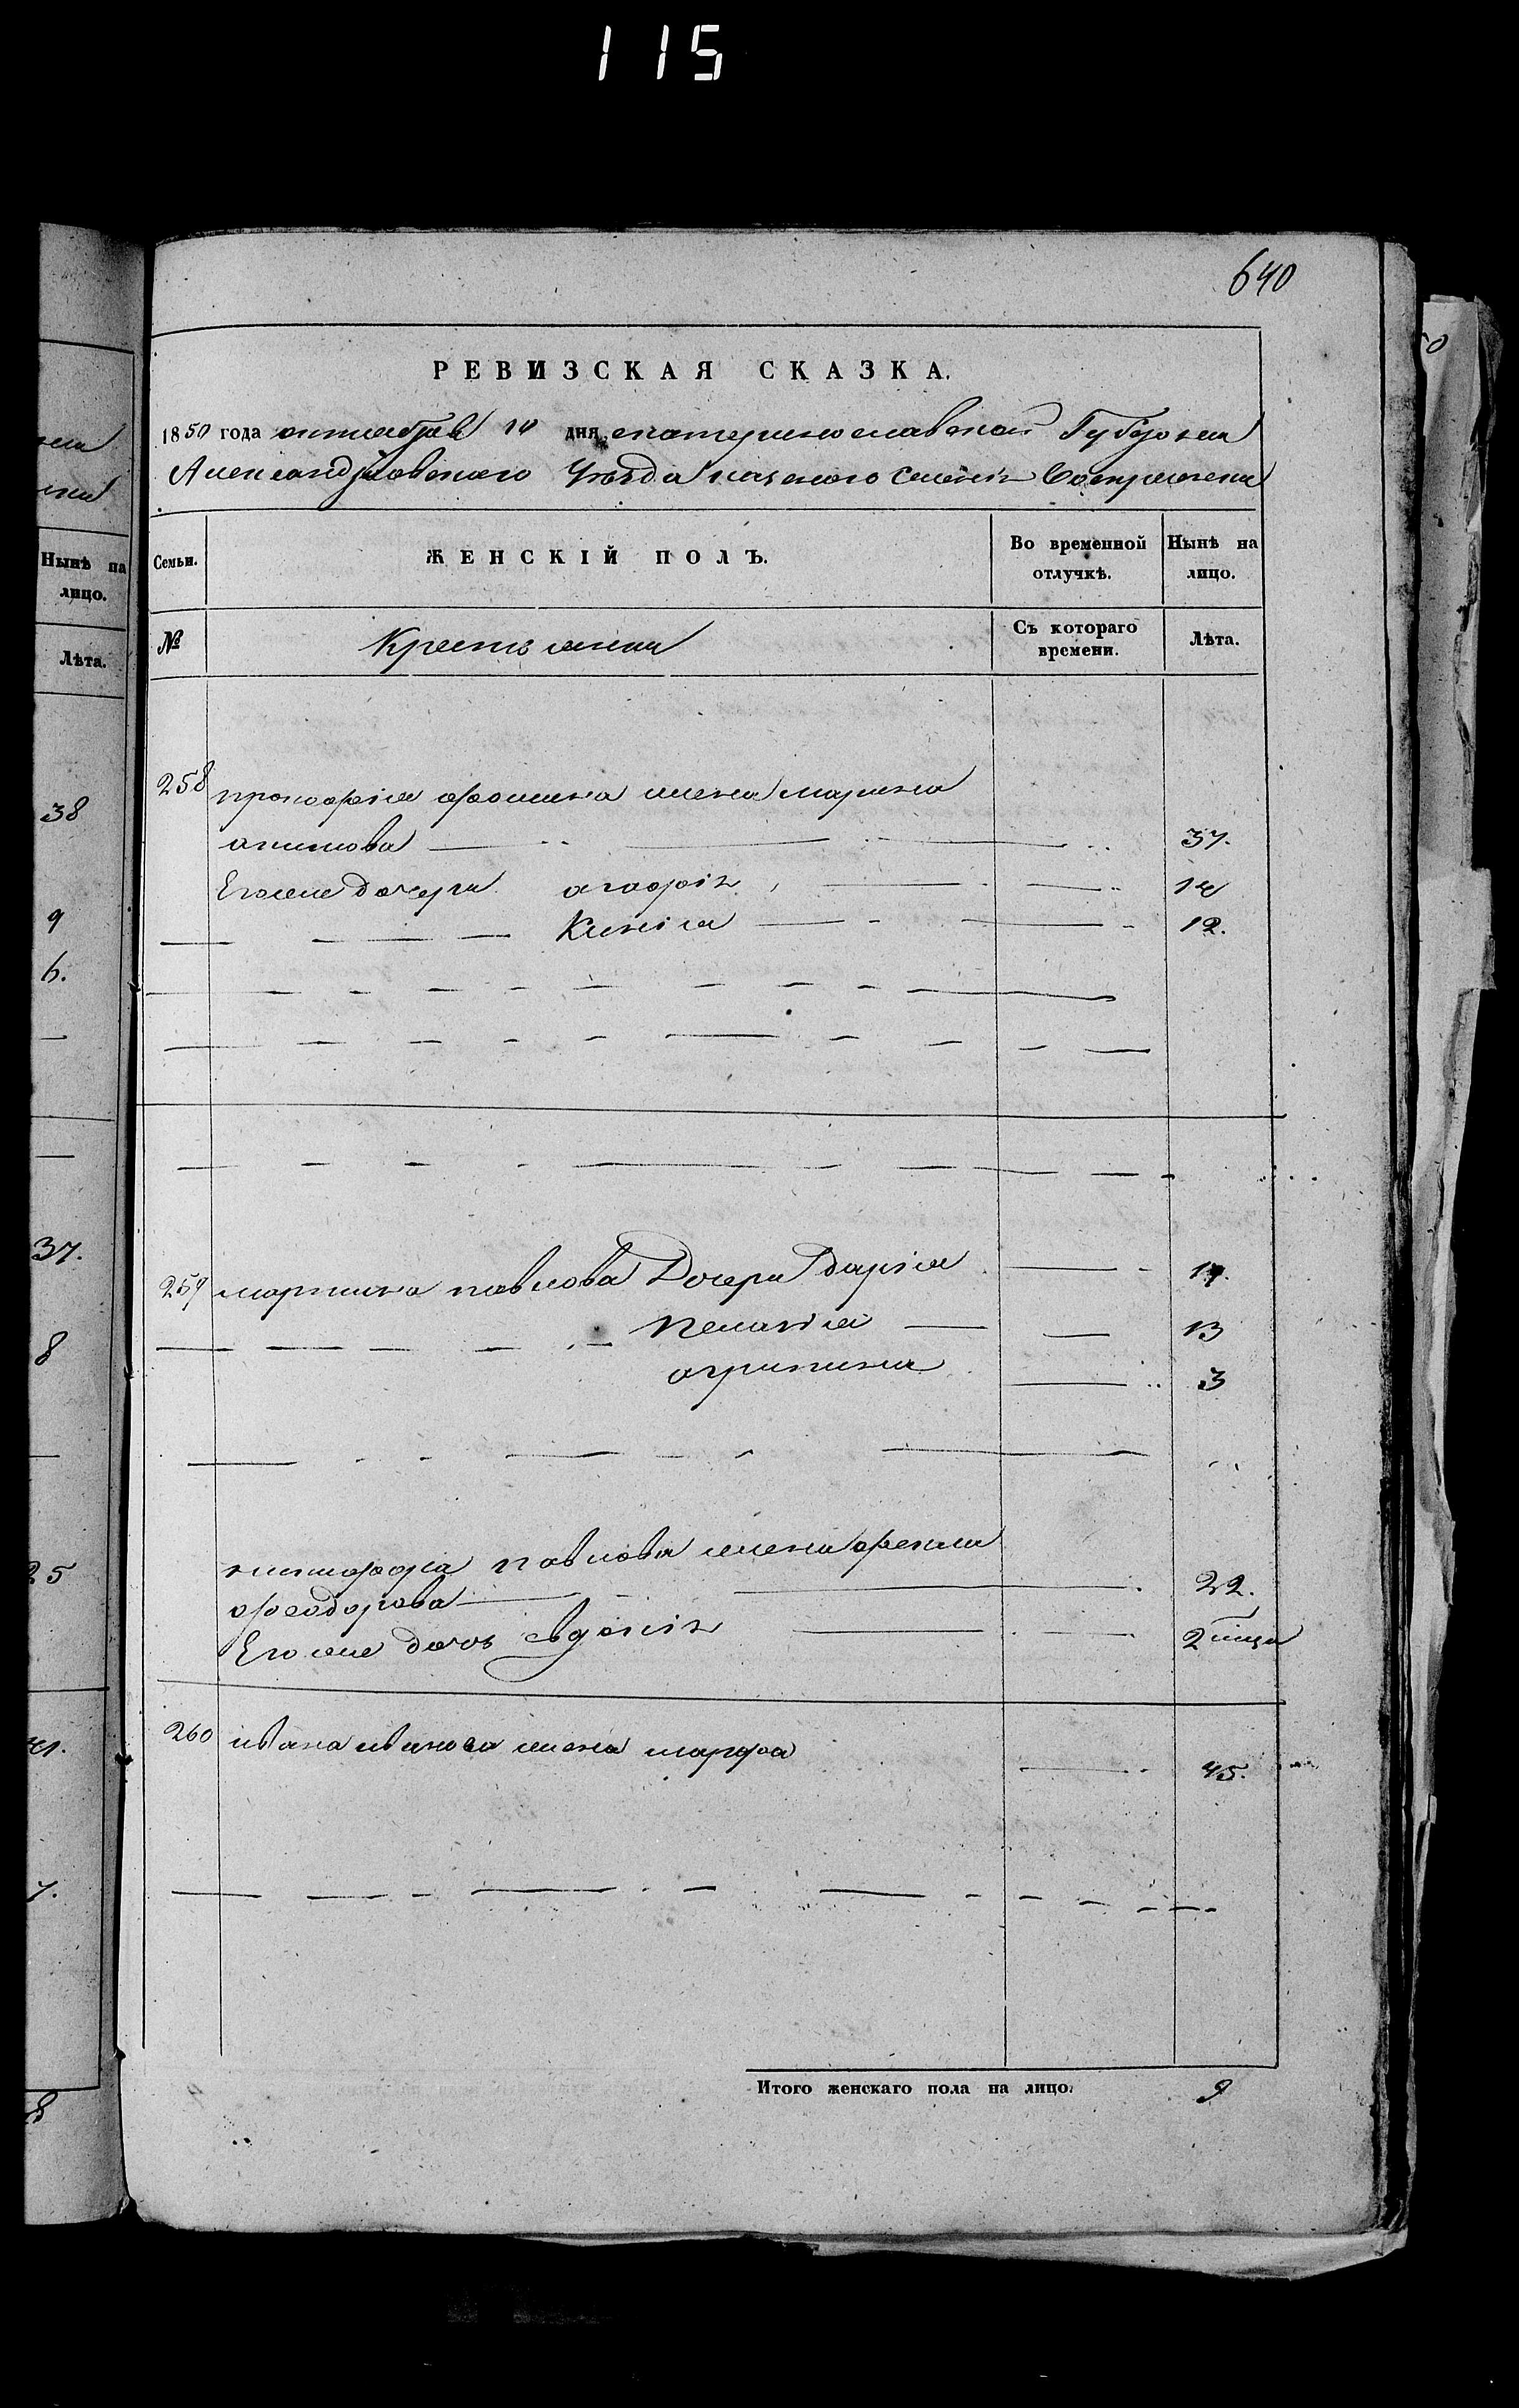 115
640
РЕВИЗСКАЯ СКАЗКА.
1850 года октября 10 дня екатеринославской Губернии
Александровского Уезда казенного селения Воскресенки
Семьи. ЖЕНСКІЙ ПОЛЪ. Во временной отлучкѣ. Нынѣ на лицо.
№ Крестьянки Съ котораго времени. Лѣта.
258 прокофія фомина жена марина
акимова 37.
Его же дочери агафія 14
Ксенія 12.
259 мартина павлова Дочери дарія 17.
пелагія 13
агрипина 3
никифора павлова жена фекла
феодорова 22.
Его же дочь евдокія 2 месяца
260 ивана иванова жена марфа 45.
Итого женскаго пола на лицо. 9
Нынѣ на
лицо.
Лѣта.
38
9
6.
37.
8
25
41.
7.
8